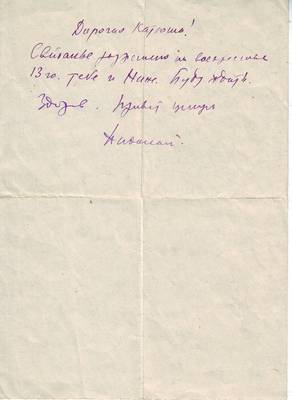 Дорогая Катюша!
Свидание назначено на воскресенье
13го. тебе и Нине. Буду ждать.
Здоров. Привет
Николай.